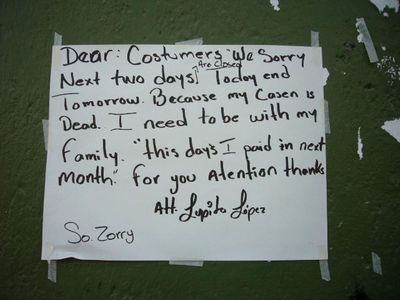 Dear: Costumers We Sorry
Are Closed
Next two days Today end
Tomorrow. Because my Casen is
Dead. I need to be with my
Family. "this day's I paid in next
month". For you Atention thanks
Att. Lupita López
So. Zorry